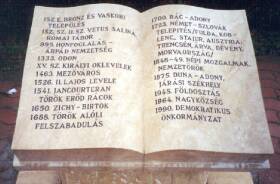 ISZ.E. BRONZ ÉS VASKORI
TELEPÜLÉS
ISZ. SZ. II. SZ. VETUS SALINA
RÓMAI TÁBOR
895. HONFOGLALÁS-
ÁRPÁD NEMZETSÉG
1333. ODON
XV. SZ. KIRÁLYI OKLEVELEK
1463. MEZŐVÁROS
1526. II. LAJOS LEVELE
1541. JANCOURTERAN
TÖRÖK ERŐD RÁCOK
1650. ZICHY-BIRTOK
1688. TÖRÖK ALÓLI
FELSZABADULÁS
1700. RÁC-ADONY
1723. NÉMET-SZLOVÁK
TELEPÍTÉS/FULDA, KOB-
LENC, STÁJER, AUSZTRIA,
TRENCSÉN, ÁRVA, DÉVÉNY,
MORVAORSZÁG/
1848-49. NÉPI MOZGALMAK
NEMZETŐRÖK
1875 DUNA-ADONY,
JÁRÁSI SZÉKHELY
1945. FÖLDOSZTÁS
1984. NAGYKÖZSÉG
1990. DEMOKRATIKUS
ÖNKORMÁNYZAT